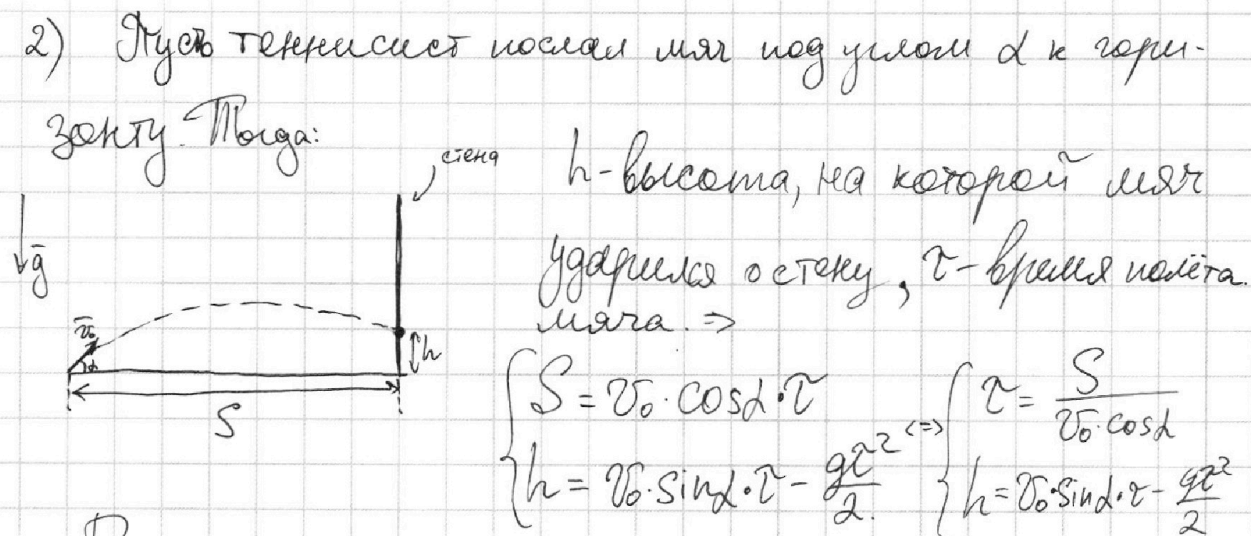 2) Пусть теннисист послал мяч под углом α к гори-
зонту. Тогда:
стена
h - высота, на которой мяч
ударился о стену, τ - время полёта
мяча. ⇒
g̅
v̅₀
α
h
S
{ S = v₀·cosα·τ <=> { τ = S / (v₀·cosα)
{ h = v₀·sinα·τ - gτ²/2. { h = v₀·sinα·τ - gτ²/2